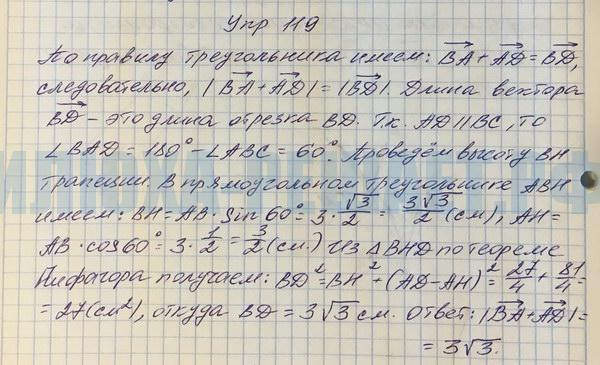 Упр 119
По правилу треугольника имеем: BA + AD = BD,
следовательно, |BA + AD| = |BD|. Длина вектора
BD – это длина отрезка BD. Т.к. AD || BC, то
∠BAD = 180° – ∠ABC = 60°. Проведём высоту BH
трапеции. В прямоугольном треугольнике ABH
имеем: BH = AB · sin 60° = 3 · √3/2 = 3√3/2 (см), AH =
AB · cos 60° = 3 · 1/2 = 3/2 (см.) Из ΔBHD по теореме
Пифагора получаем: BD² = BH² + (AD – AH)² = 27/4 + 81/4 =
= 27 (см²), откуда BD = 3√3 см. Ответ: |BA + AD| =
= 3√3.